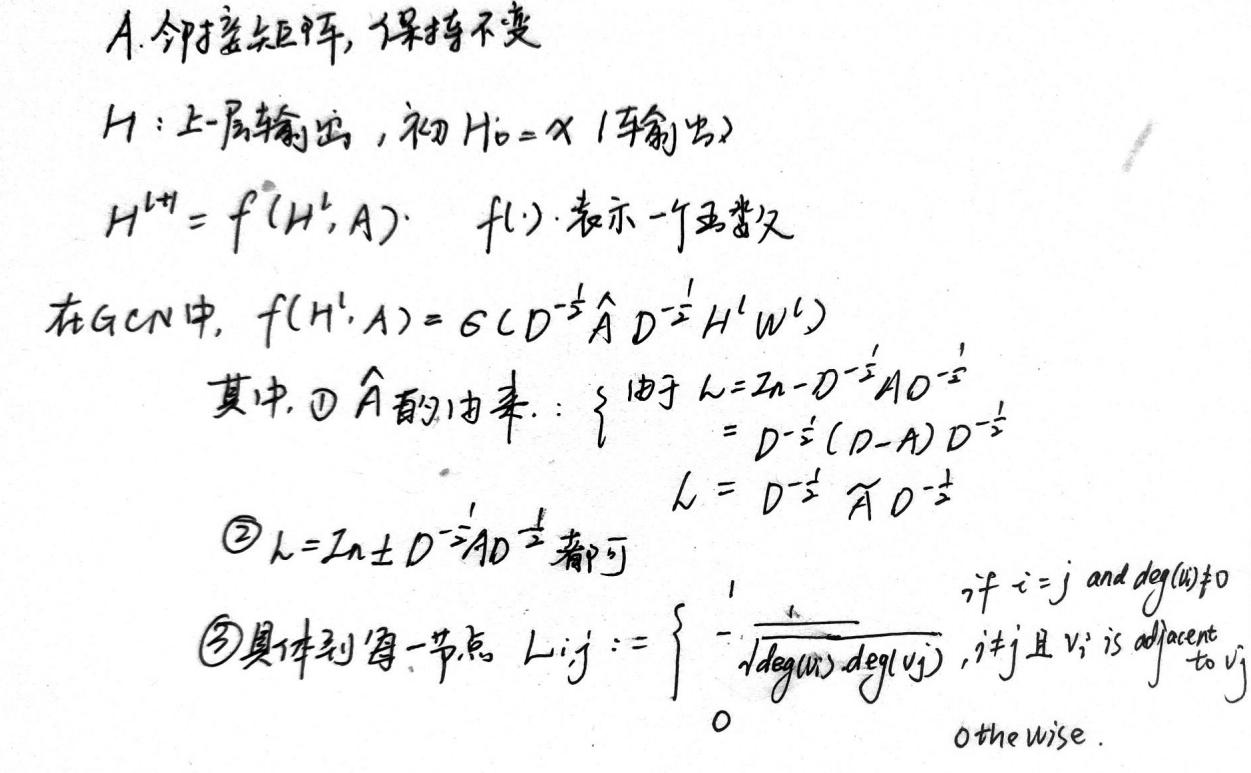 A.邻接矩阵,保持不变
H:上一层输出,初H₀=x(输出)
H^{l+1}=f(H^l,A). f(·).表示一个函数
在GCN中,f(H^l,A)=σ(D^{-1/2}ÂD^{-1/2}H^lW^l)
其中.①Â的由来.:{由于 L=In-D^{-1/2}AD^{-1/2}
=D^{-1/2}(D-A)D^{-1/2}
L=D^{-1/2}ÃD^{-1/2}
②L=In±D^{-1/2}AD^{-1/2}都可
③具体到每一节点 Li,j:={ 1 ,if i=j and deg(vi)≠0
-1/√deg(vi).deg(vj) ,i≠j且vi is adjacent to vj
0 othewise.